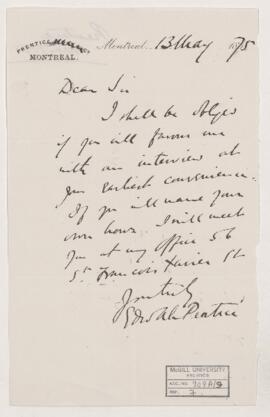 PRENTICE
MONTREAL.
Montreal 13 May 1875
Dear Sir
I shall be obliged
if you will favour me
with an interview at
your earliest convenience.
If you will name your
own hour I will meet
you at my Office 56
St Francois Xavier St
Yours truly
Edw Alx Prentice
McGILL UNIVERSITY
ARCHIVES
ACC. NO. 909A/9
REF. 7